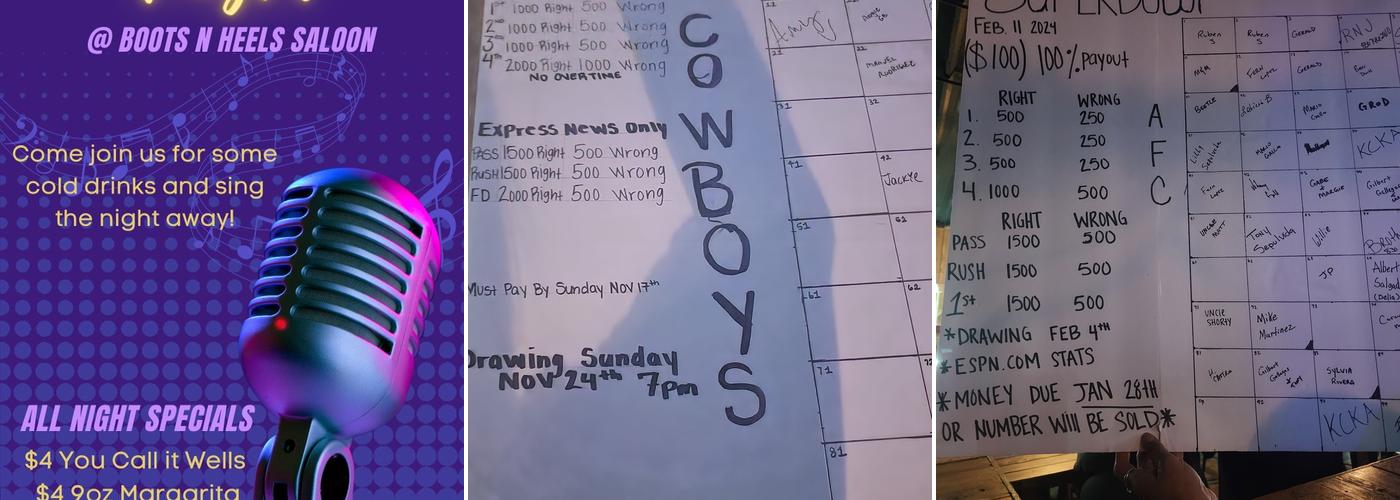 @ BOOTS N HEELS SALOON
Come join us for some
cold drinks and sing
the night away!
ALL NIGHT SPECIALS
$4 You Call it Wells
$4 9oz Margarita
1st 1000 Right 500 Wrong
2nd 1000 Right 500 Wrong
3rd 1000 Right 500 Wrong
4th 2000 Right 1000 Wrong
NO OVERTIME
Express News Only
PASS 1500 Right 500 Wrong
Rush 1500 Right 500 Wrong
FD 2000 Right 500 Wrong
Must Pay By Sunday NOV 17th
Drawing Sunday
Nov 24th 7pm
COWBOYS
Amy
21
22
MANUEL
RODRIGUEZ
31
32
41
42
Jackye
51
61
61
62
71
81
SUPERBOWL
FEB. 11 2024
($100) 100% payout
RIGHT WRONG
1. 500 250
2. 500 250
3. 500 250
4. 1000 500
AFC
RIGHT WRONG
PASS 1500 500
RUSH 1500 500
1st 1500 500
*DRAWING FEB 4th
*ESPN.COM STATS
*MONEY DUE JAN 28th
OR NUMBER WILL BE SOLD*
Ruben
S
Ruben
S
GERALD
RNJ
FERN
LUTZ
GERALD
BEETLE
MARIO
GROD
KCK
GABE
+
MARGIE
Tony
Sepulveda
Willie
JP
Albert
Salgad
(Delia)
UNCLE
SHORTY
Mike
Martinez
SYLVIA
RIVERA
KCKA